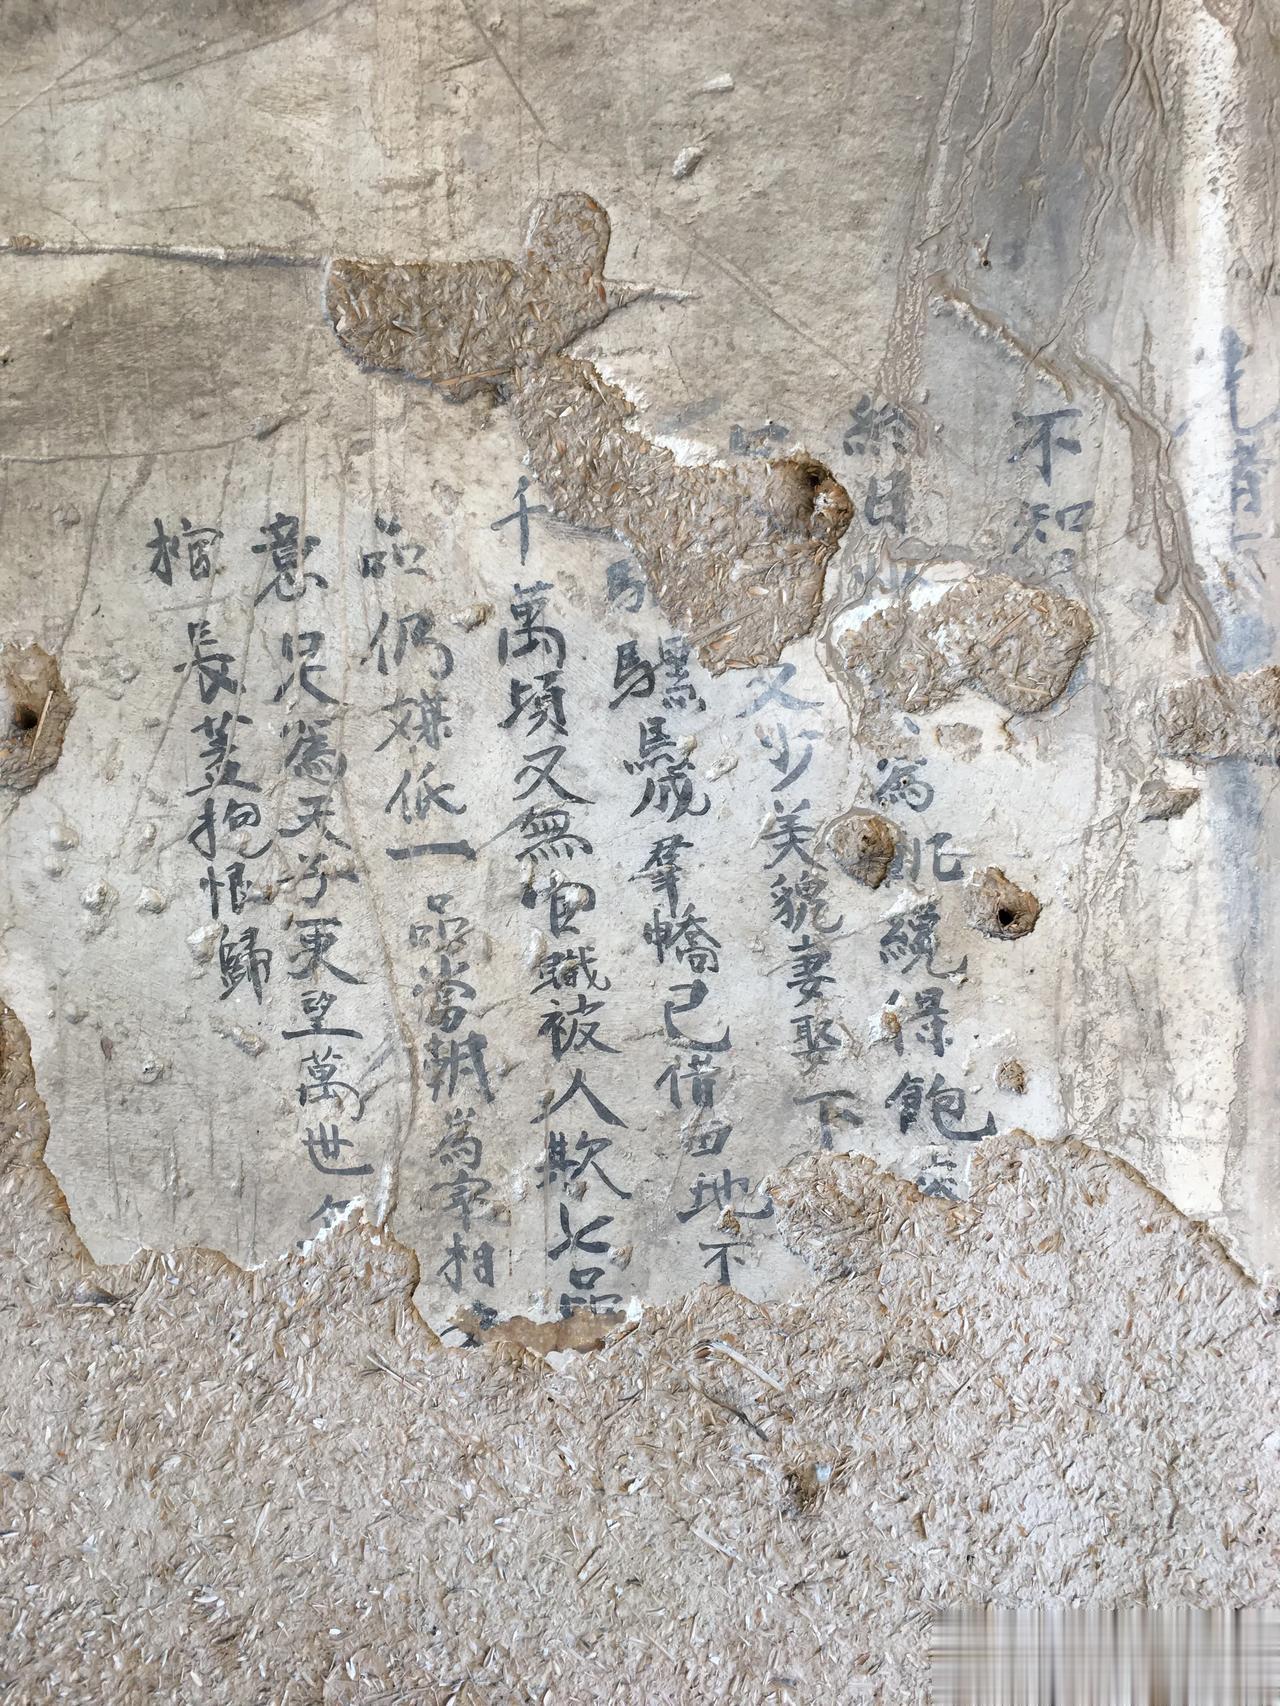 不知
終日
為飢纔得飽
又少美貌妻娶下
騾馬成羣轎已偹田地不
千萬頃又無官職被人欺七品
品仍嫌低一品當朝為宰相
意足為天子更望萬世
棺長蓋抱恨歸